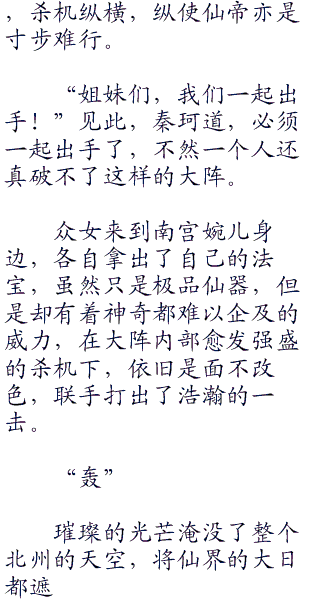 ，杀机纵横，纵使仙帝亦是
寸步难行。
“姐妹们，我们一起出
手！”见此，秦珂道，必须
一起出手了，不然一个人还
真破不了这样的大阵。
众女来到南宫婉儿身
边，各自拿出了自己的法
宝，虽然只是极品仙器，但
是却有着神奇都难以企及的
威力，在大阵内部愈发强盛
的杀机下，依旧是面不改
色，联手打出了浩瀚的一
击。
“轰”
璀璨的光芒淹没了整个
北州的天空，将仙界的大日
都遮